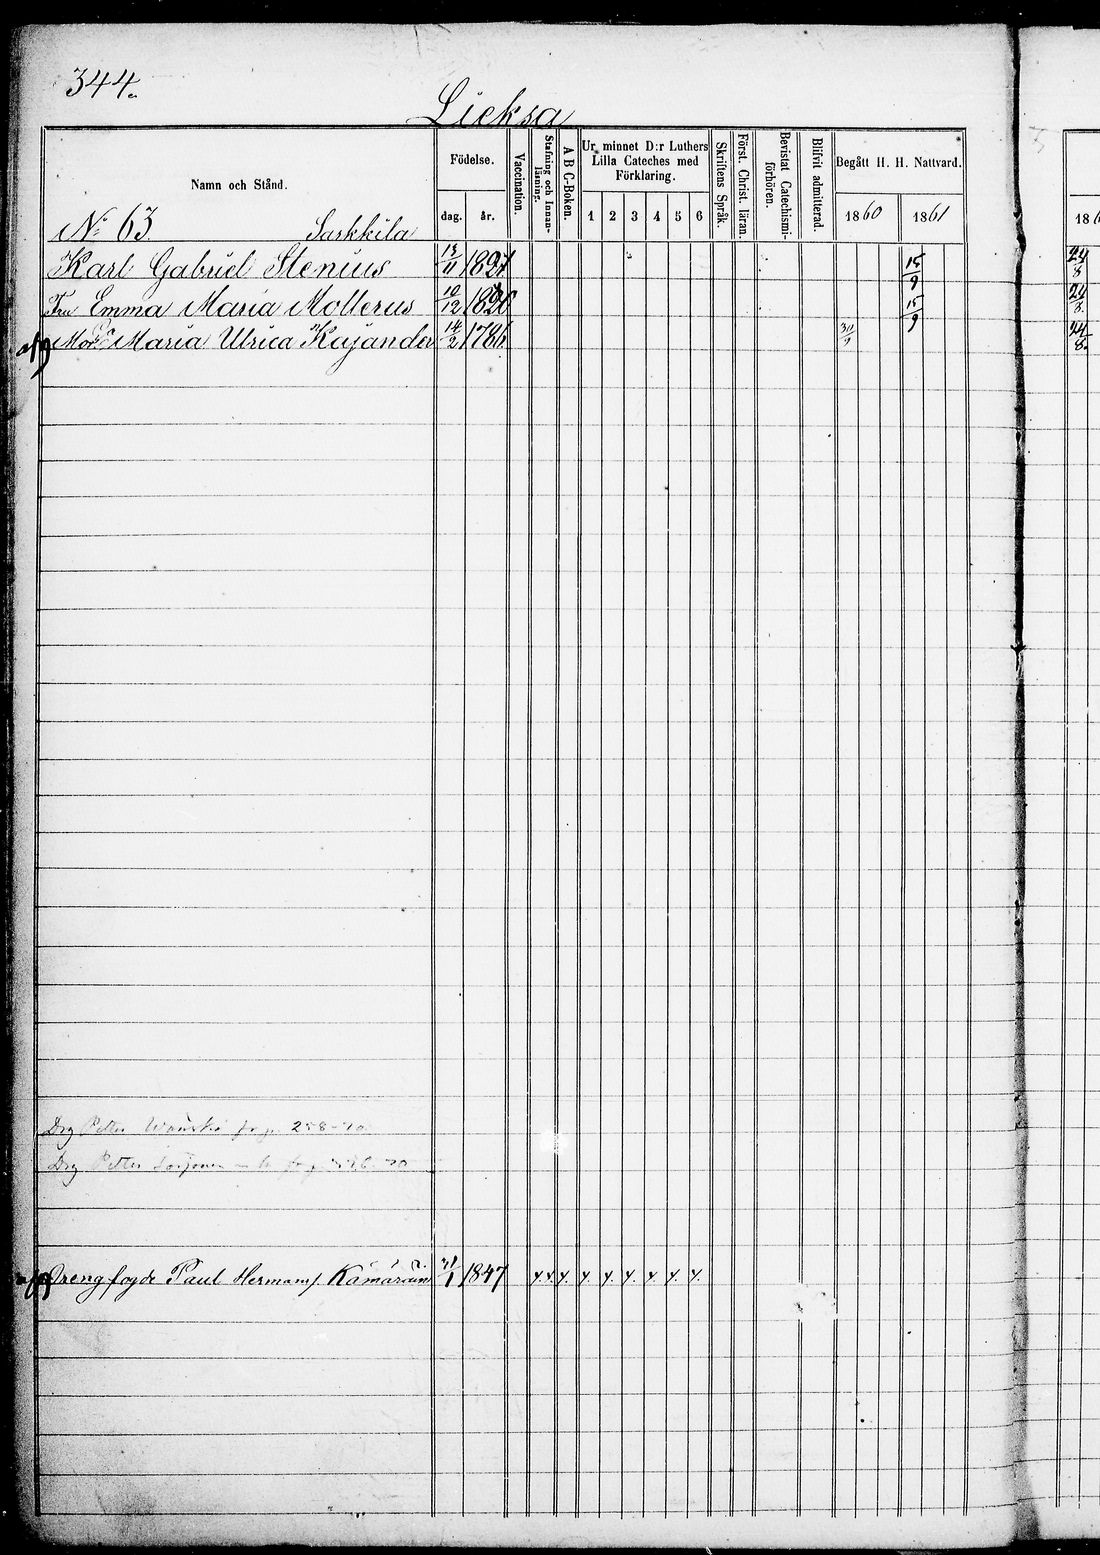 344.
Lieksa
Namn och Stånd.
Födelse.
dag. år.
Vaccination.
Stafning och Innanläsning.
A B C-Boken.
Ur minnet D:r Luthers Lilla Cateches med Förklaring.
1 2 3 4 5 6
Skriftens Språk.
Först. Christ. läran.
Bevistat Catechismi-förhören.
Blifvit admitterad.
Begått H. H. Nattvard.
1860 1861
186
No 63. Sarkkila
Karl Gabriel Stenius 13/11 1821 15/9 24/8
Fru Emma Maria Molterus 10/12 1820 15/9 24/8
Maria Ulrica Kajander 14/2 1786 24/8
Drg Petter fr p. 258
Drg Petter
Drengfogde Paul Hermans. 1847